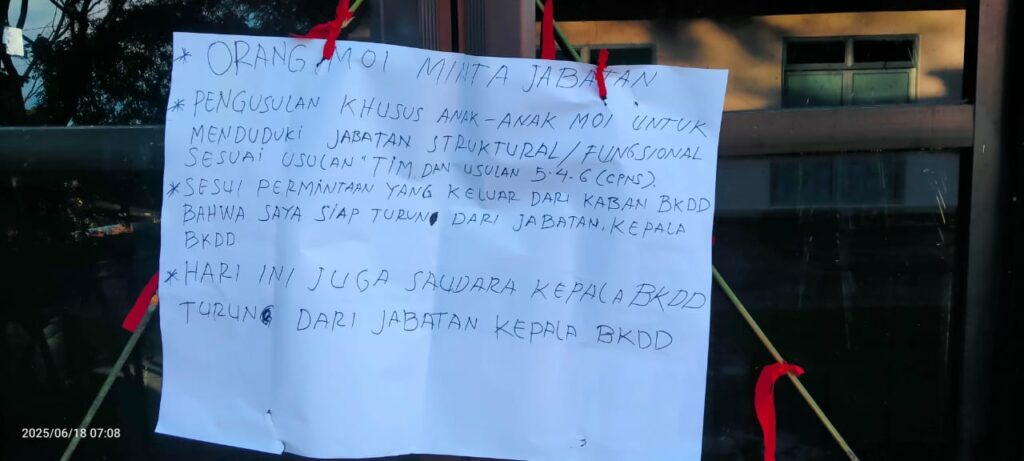 * ORANG MOI MINTA JABATAN
* PENGUSULAN KHUSUS ANAK-ANAK MOI UNTUK
MENDUDUKI JABATAN STRUKTURAL/FUNGSIONAL
SESUAI USULAN "TIM DAN USULAN 5.4.6 (CPNS).
* SESUI PERMINTAAN YANG KELUAR DARI KABAN BKDD
BAHWA SAYA SIAP TURUN DARI JABATAN. KEPALA
BKDD
* HARI INI JUGA SAUDARA KEPALA BKDD
TURUN DARI JABATAN KEPALA BKDD
2025/06/18 07:08